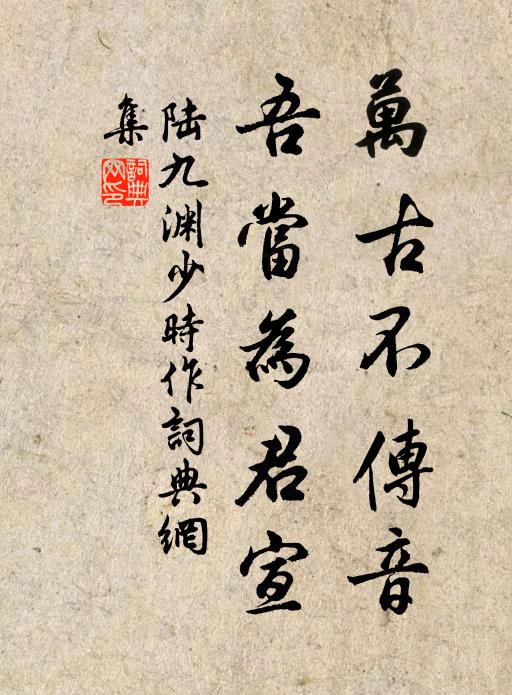 萬古不傳音
吾當為君宣
陆九渊少時作詞典網
集
詞典
网印